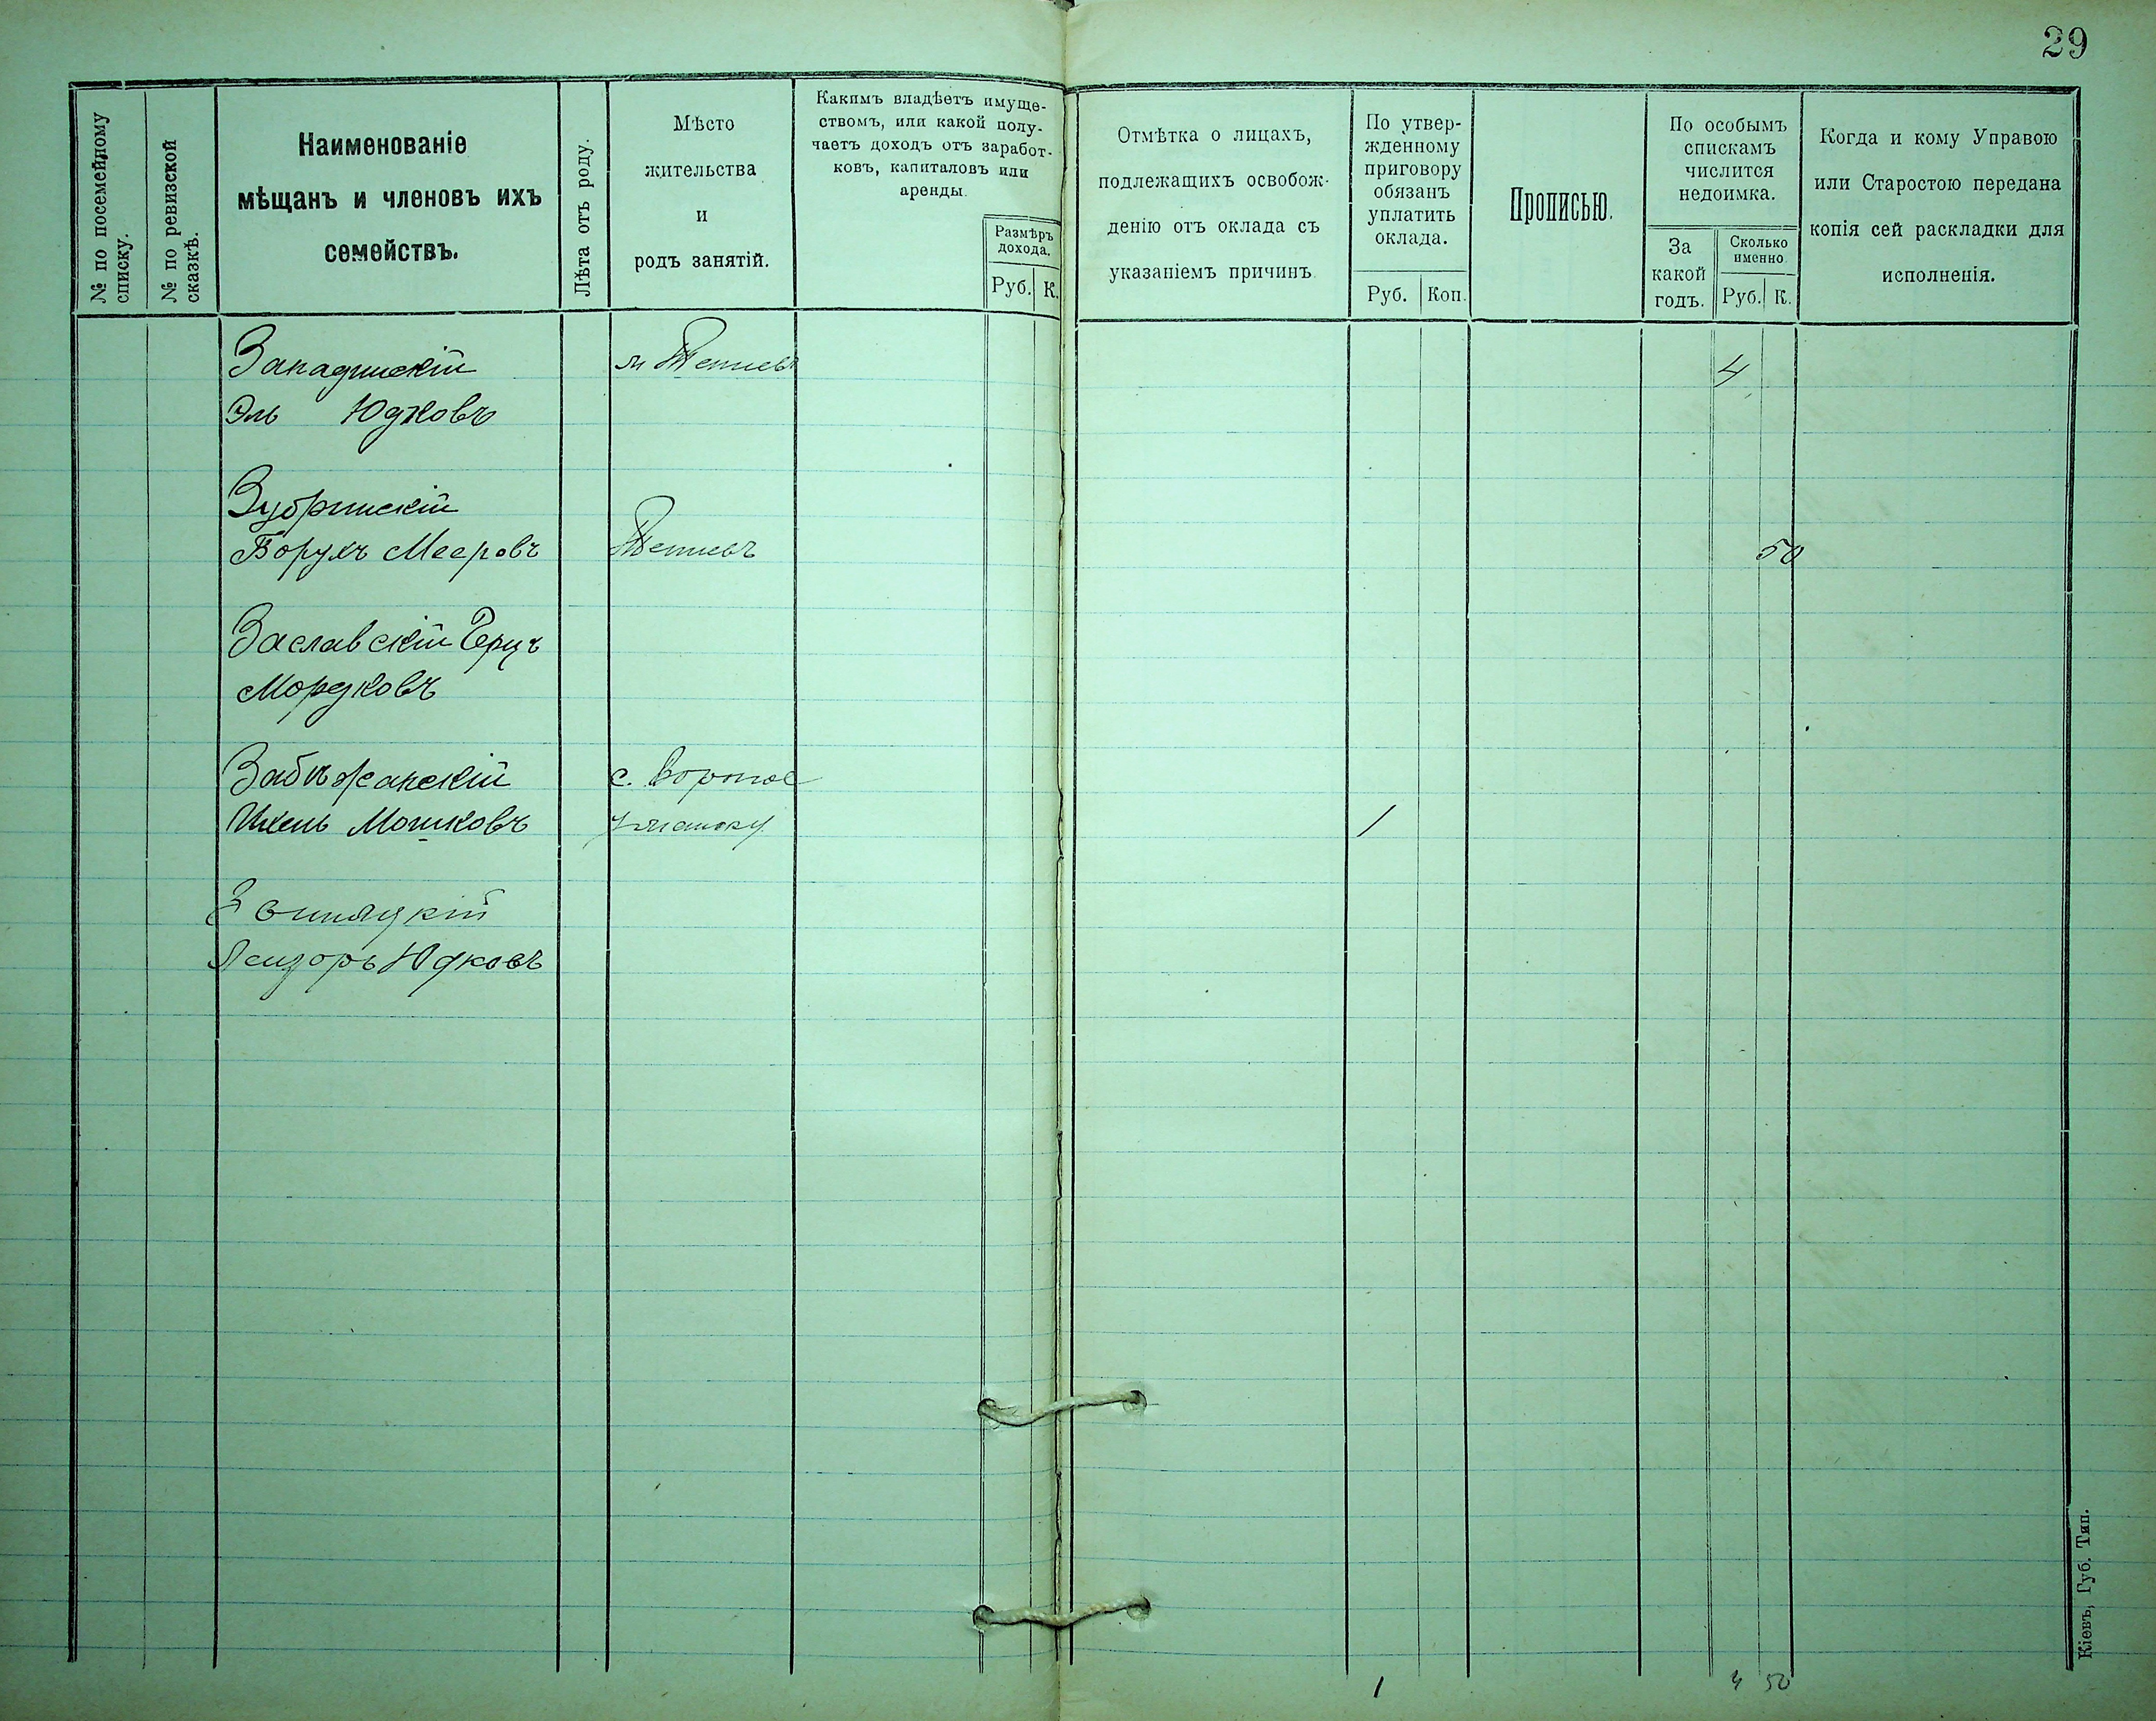 29
№ по посемейному списку.
№ по ревизской сказкѣ.
Наименованіе
мѣщанъ и членовъ ихъ
семействъ.
Лѣта отъ роду.
Мѣсто
жительства
и
родъ занятій.
Какимъ владѣетъ имуще-
ствомъ, или какой полу-
чаетъ доходъ отъ заработ-
ковъ, капиталовъ или
аренды.
Размѣръ
дохода.
Руб. К.
Отмѣтка о лицахъ,
подлежащихъ освобож-
денію отъ оклада съ
указаніемъ причинъ
По утвер-
жденному
приговору
обязанъ
уплатить
оклада.
Руб. Коп.
Прописью.
По особымъ
спискамъ
числится
недоимка.
За
какой
годъ.
Сколько
именно
Руб. К.
Когда и кому Управою
или Старостою передана
копія сей раскладки для
исполненія.
Западинскій м Тетіевъ 4
Эль Юдковъ
Зубринскій
Борухъ Мееровъ Тетіевъ 50
Заславскій Герцъ
Мордковъ
Забѣжанскій с.
Ихель Мошковъ 1
Юдковъ
1 4 50
Кіевъ, Губ. Тип.